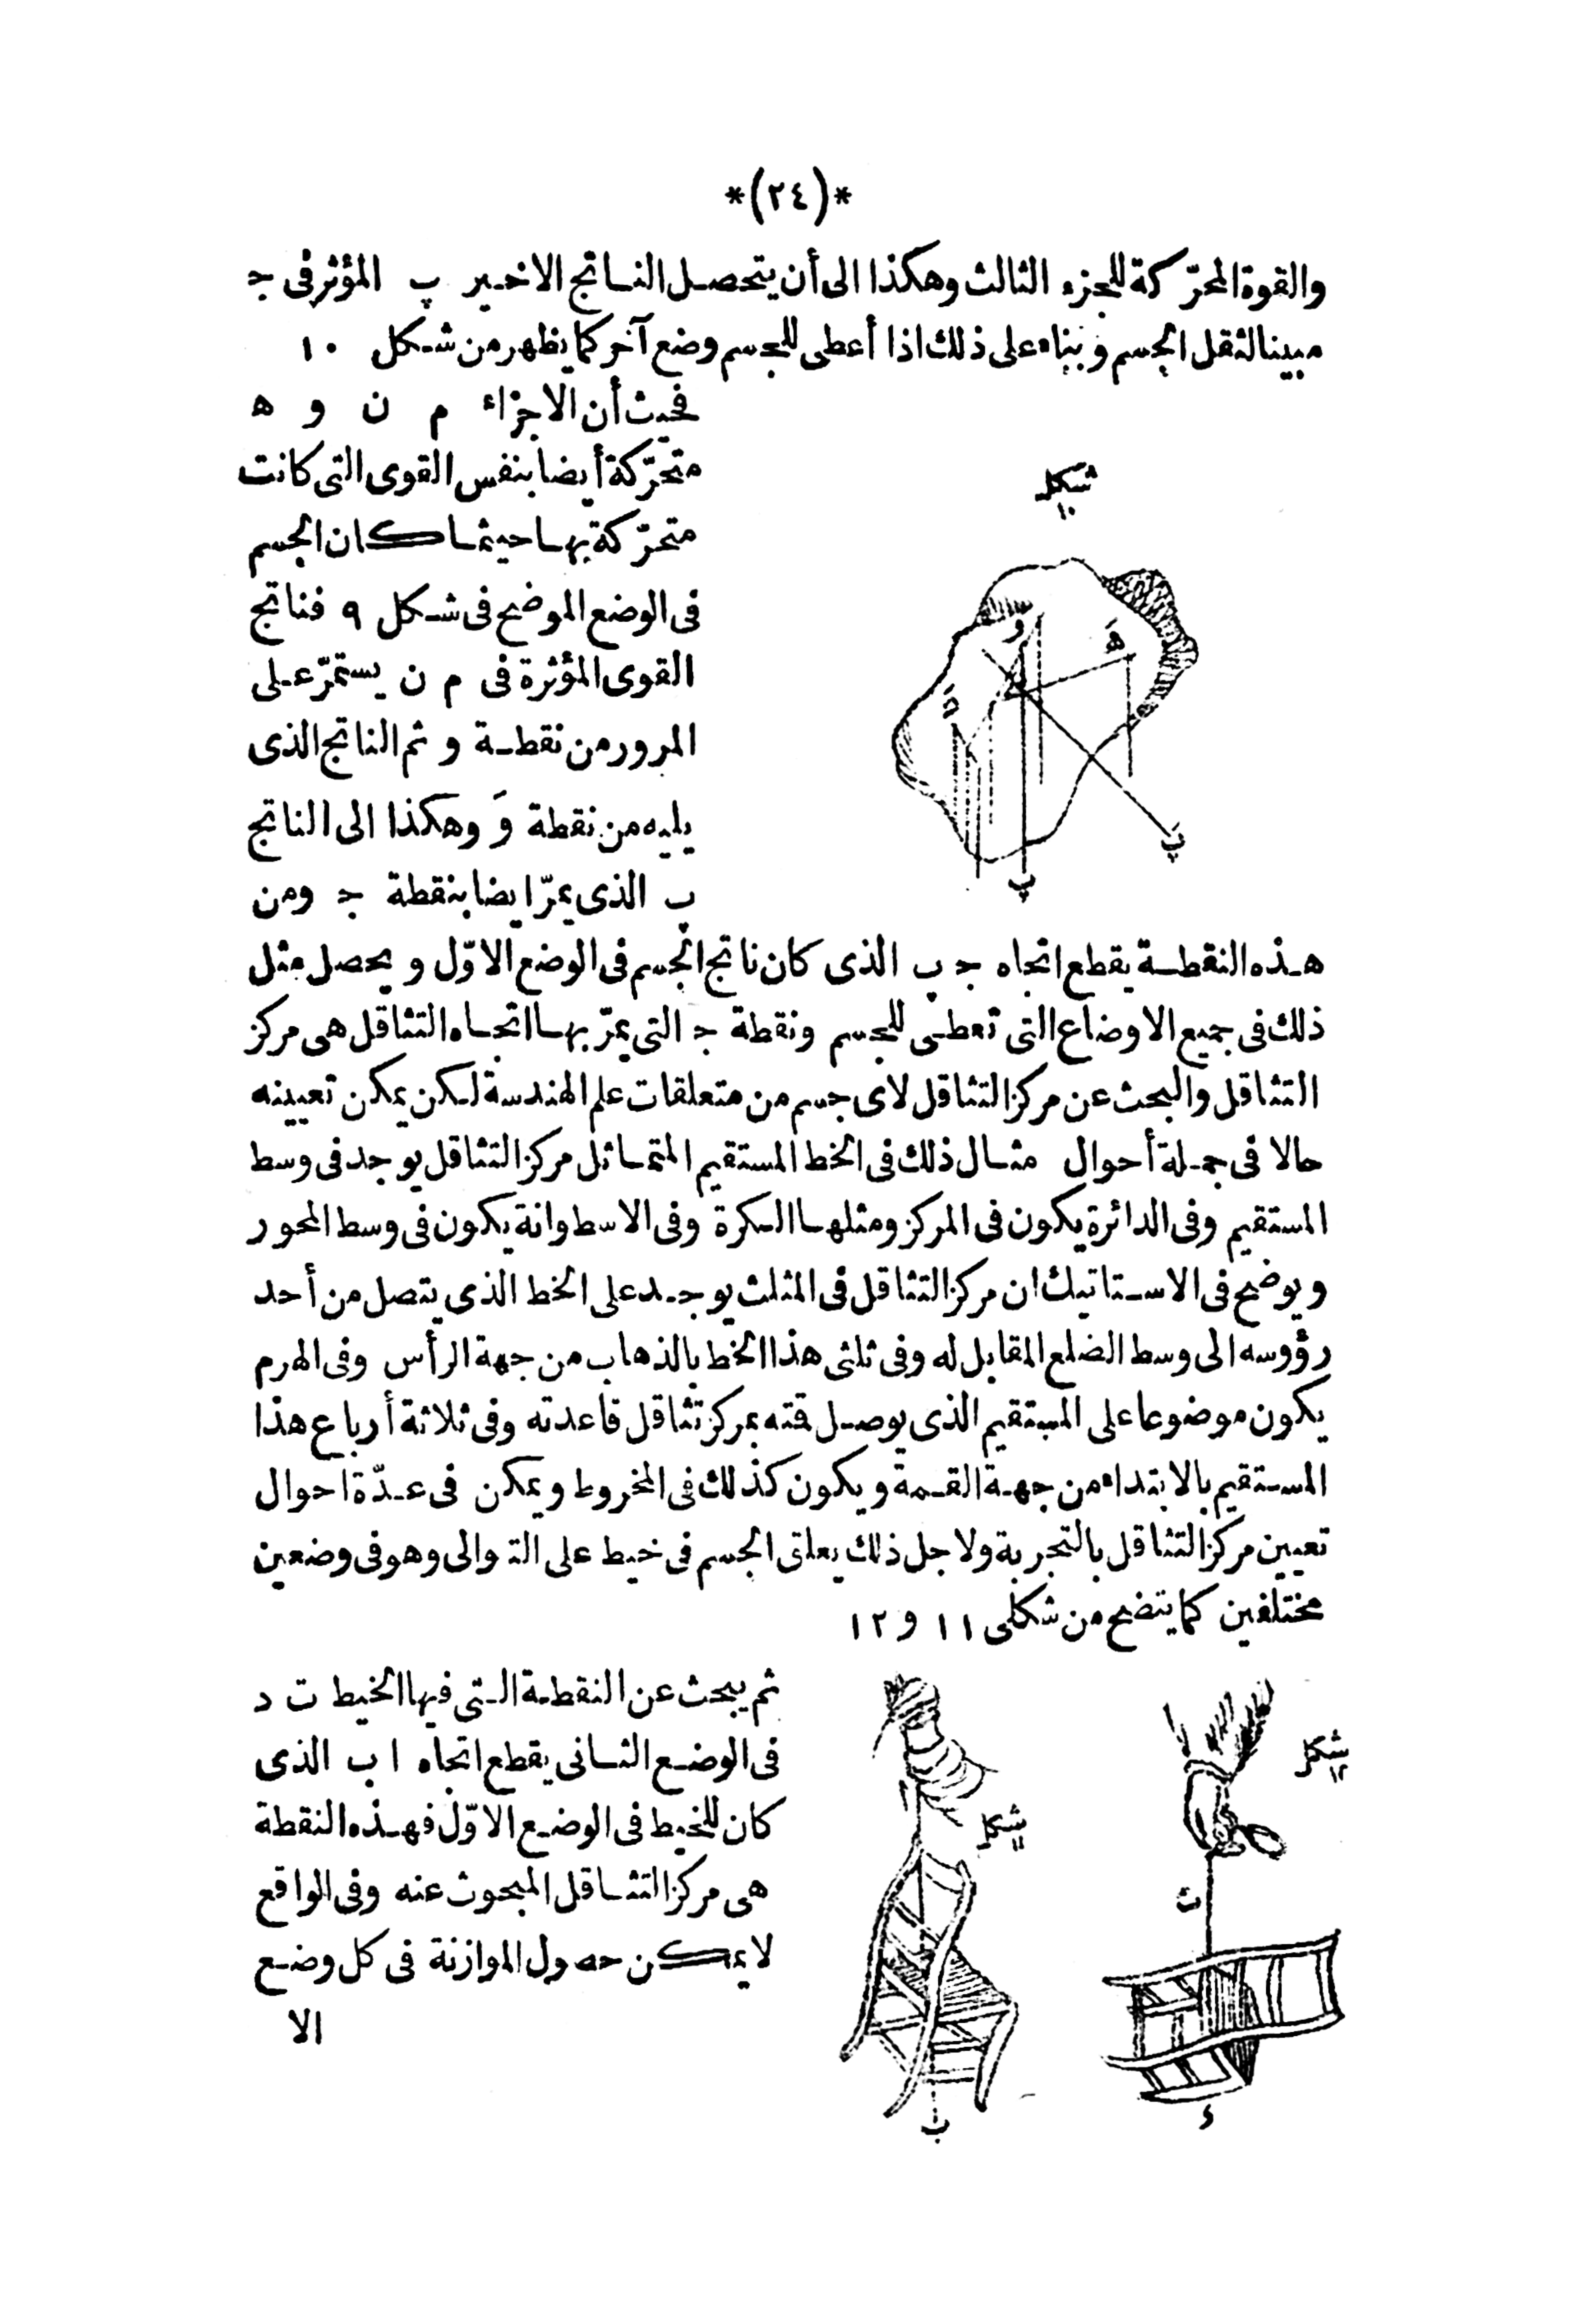 *(٢٤)*
والقوة المحرّكة للجزء الثالث وهكذا الى أن يتحصل الناتج الاخير پ المؤثر فى ج
مبينا لثقل الجسم وبناء على ذلك اذا أعطى للجسم وضع آخر كما يظهر من شكل ١٠
فحيث أن الاجزاء م ن و ه
متحرّكة أيضا بنفس القوى التى كانت
متحرّكة بها حيثما كان الجسم
فى الوضع الموضح فى شكل ٩ فناتج
القوى المؤثرة فى م ن يستمرّ على
المرور من نقطة و ثم الناتج الذى
يليه من نقطة وَ وهكذا الى الناتج
پ الذى يمرّ ايضا بنقطة ج ومن
شكل
١٠
و
هَ
پ
پ
هذه النقطة يقطع اتجاه ج پ الذى كان ناتج الجسم فى الوضع الاوّل ويحصل مثل
ذلك فى جميع الاوضاع التى تعطى للجسم ونقطة ج التى يمرّ بها اتجاه التثاقل هى مركز
التثاقل والبحث عن مركز التثاقل لاى جسم من متعلقات علم الهندسة لكن يمكن تعيينه
حالا فى جملة أحوال مثال ذلك فى الخط المستقيم المتماثل مركز التثاقل يوجد فى وسط
المستقيم وفى الدائرة يكون فى المركز ومثلها الكرة وفى الاسطوانة يكون فى وسط المحور
ويوضح فى الاستاتيك ان مركز التثاقل فى المثلث يوجد على الخط الذى يتصل من أحد
رؤوسه الى وسط الضلع المقابل له وفى ثلثى هذا الخط بالذهاب من جهة الرأس وفى الهرم
يكون موضوعا على المستقيم الذى يوصل قمته بمركز تثاقل قاعدته وفى ثلاثة أرباع هذا
المستقيم بالابتداء من جهة القمة ويكون كذلك فى المخروط ويمكن فى عدّة احوال
تعيين مركز التثاقل بالتجربة ولاجل ذلك يعلق الجسم فى خيط على التوالى وهو فى وضعين
مختلفين كما يتضح من شكلى ١١ و ١٢
ثم يبحث عن النقطة التى فيها الخيط ت د
فى الوضع الثانى يقطع اتجاه ا ب الذى
كان للخيط فى الوضع الاوّل فهذه النقطة
هى مركز التثاقل المبحوث عنه وفى الواقع
لا يمكن حصول الموازنة فى كل وضع
الا
شكل
١٢
شكل
١١
ت
ب
د